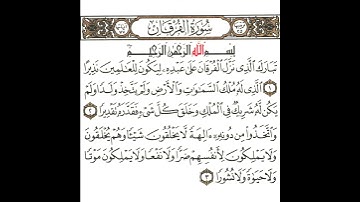 سُورَةُ الْفُرْقَانِ
بِسْمِ اللَّهِ الرَّحْمَٰنِ الرَّحِيمِ
تَبَارَكَ الَّذِي نَزَّلَ الْفُرْقَانَ عَلَىٰ عَبْدِهِ لِيَكُونَ لِلْعَالَمِينَ نَذِيرًا
١ الَّذِي لَهُ مُلْكُ السَّمَاوَاتِ وَالْأَرْضِ وَلَمْ يَتَّخِذْ وَلَدًا وَلَمْ
يَكُن لَّهُ شَرِيكٌ فِي الْمُلْكِ وَخَلَقَ كُلَّ شَيْءٍ فَقَدَّرَهُ تَقْدِيرًا ٢
وَاتَّخَذُوا مِن دُونِهِ آلِهَةً لَّا يَخْلُقُونَ شَيْئًا وَهُمْ يُخْلَقُونَ
وَلَا يَمْلِكُونَ لِأَنفُسِهِمْ ضَرًّا وَلَا نَفْعًا وَلَا يَمْلِكُونَ مَوْتًا
وَلَا حَيَاةً وَلَا نُشُورًا ٣